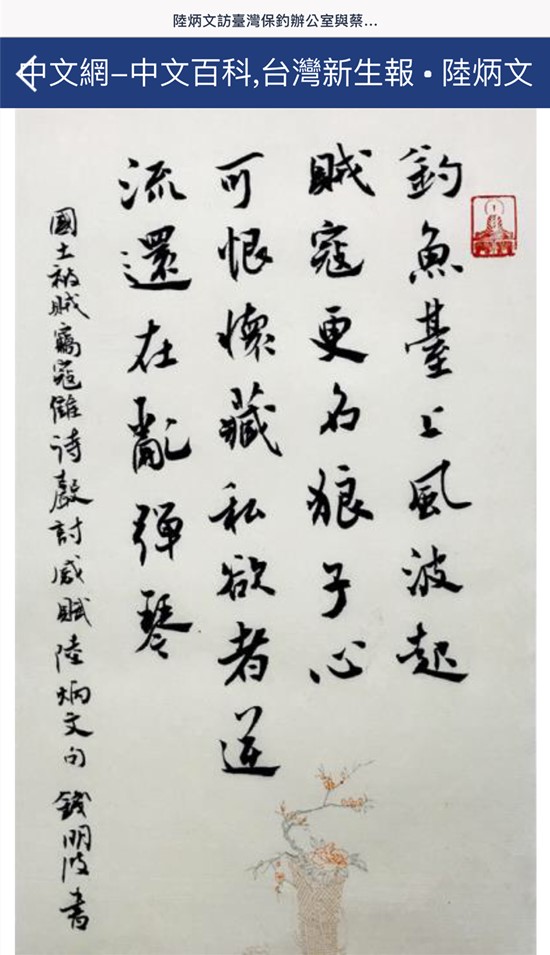 陸炳文訪臺灣保釣辦公室與蔡...
中文網–中文百科,台灣新生報 • 陸炳文
釣魚臺上風波起
賊寇更名狼子心
可恨懷藏私欲者逆
流還在亂彈琴
國土被賊竊寇雠诗聲討感賦陸炳文句 錢明波書